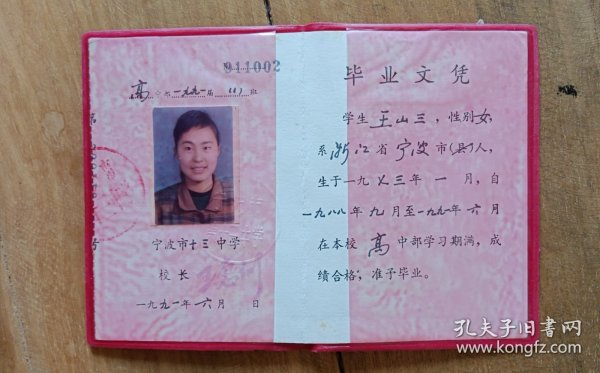 911002
高中部一九九一届(1)班
宁波市十三中学
校长
一九九一年六月 日
毕业文凭
学生王山三，性别女，
系浙江省宁波市(县)人，
生于一九七三年一月，自
一九八八年九月至一九九一年六月
在本校高中部学习期满，成
绩合格，准予毕业。
孔夫子旧书网
www.kongfz.com